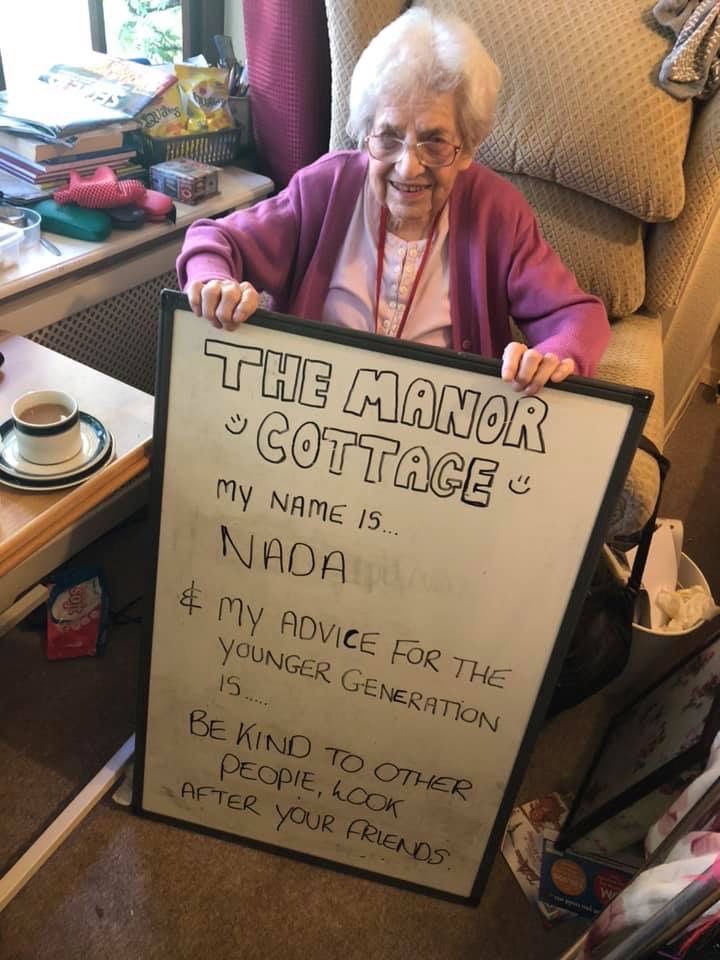 THE MANOR
COTTAGE
MY NAME IS...
NADA
& MY ADVICE FOR THE
YOUNGER GENERATION
IS.....
BE KIND TO OTHER
PEOPlE, LOOK
AFTER YOUR FRIENDS.